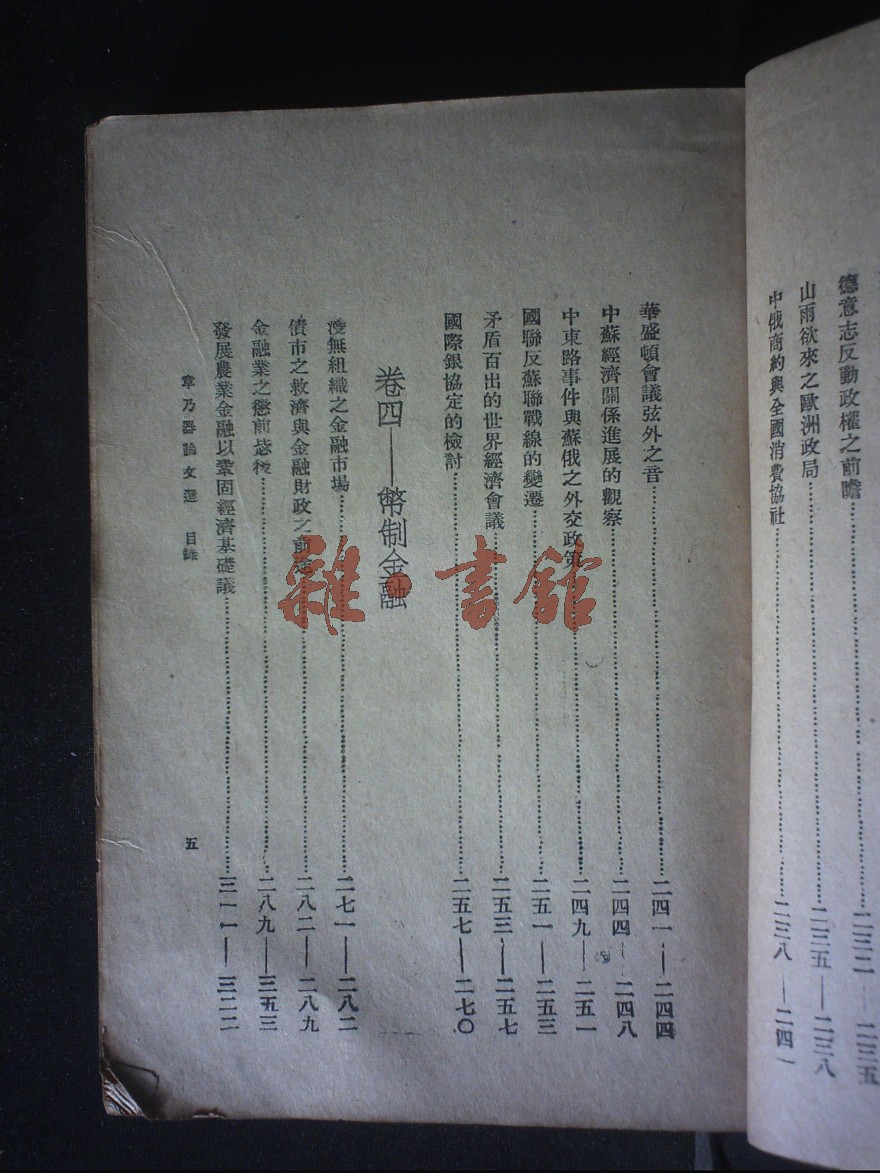 德意志反動政權之前瞻……二三二—二三五
山雨欲來之歐洲政局……二三五—二三八
中俄商約與全國消費協社……二三八—二四一
華盛頓會議弦外之音……二四一—二四四
中蘇經濟關係進展的觀察……二四四—二四八
中東路事件與蘇俄之外交政策……二四九—二五一
國聯反蘇聯戰線的變遷……二五一—二五三
矛盾百出的世界經濟會議……二五三—二五七
國際銀協定的檢討……二五七—二七〇
卷四——幣制金融
漫無組織之金融市場……二七一—二八二
債市之救濟與金融財政之前途……二八二—二八九
金融業之懲前毖後……二八九—三五三
發展農業金融以鞏固經濟基礎議……三一一—三二二
章乃器論文選 目錄
五
雜·書館